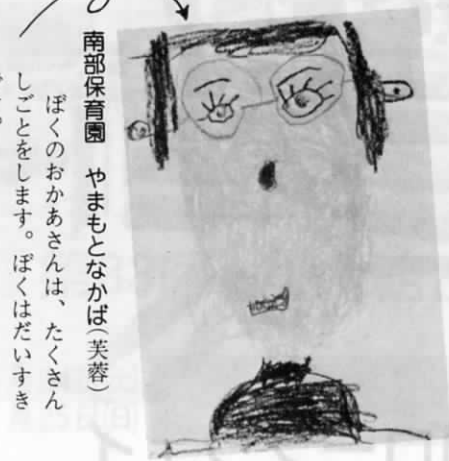 南部保育園　やまもとなかば(芙蓉)
ぼくのおかあさんは、たくさん
しごとをします。ぼくはだいすき
です。